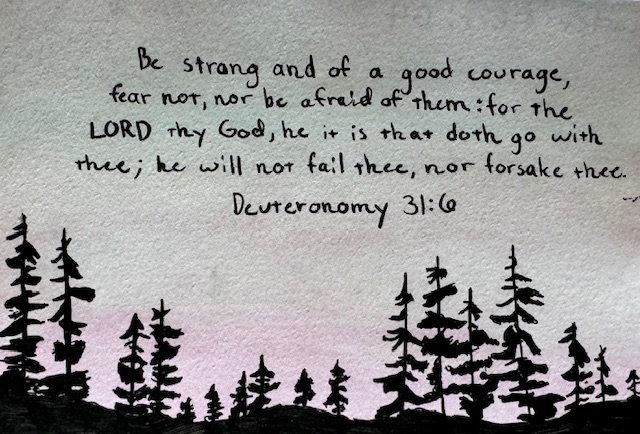 Be strong and of a good courage,
fear not, nor be afraid of them: for the
LORD thy God, he it is that doth go with
thee; he will not fail thee, nor forsake thee.
Deuteronomy 31:6